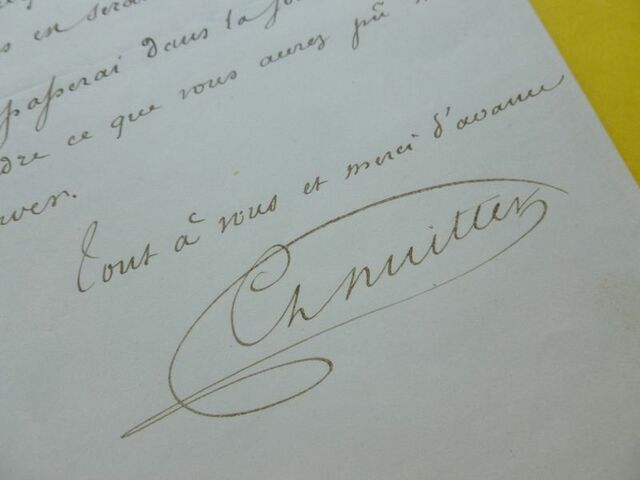 en sera
passerai dans la
dre ce que vous aurez pû
rver.
Tout à vous et merci d'avance
Ch Nuitter